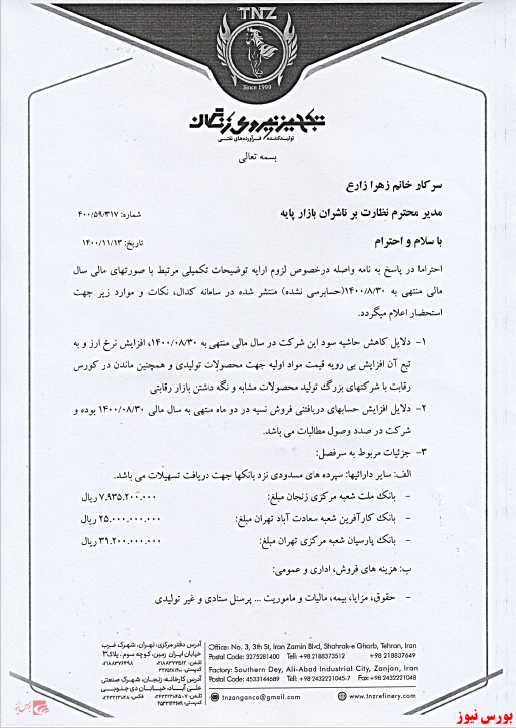 TNZ
Since 1999
تجهیز نیروی زنگان
تولیدکننده فرآورده‌های نفتی
بسمه تعالی
سرکار خانم زهرا زارع
مدیر محترم نظارت بر ناشران بازار پایه
شماره: ۴۰۰/۵۹/۳۱۷
با سلام و احترام
تاریخ: ۱۴۰۰/۱۱/۱۳
احتراما در پاسخ به نامه واصله درخصوص لزوم ارایه توضیحات تکمیلی مرتبط با صورتهای مالی سال
مالی منتهی به ۱۴۰۰/۸/۳۰(حسابرسی نشده) منتشر شده در سامانه کدال، نکات و موارد زیر جهت
استحضار اعلام میگردد.
۱- دلایل کاهش حاشیه سود این شرکت در سال مالی منتهی به ۱۴۰۰/۰۸/۳۰، افزایش نرخ ارز و به
تبع آن افزایش بی رویه قیمت مواد اولیه جهت محصولات تولیدی و همچنین ماندن در کورس
رقابت با شرکتهای بزرگ تولید محصولات مشابه و نگه داشتن بازار رقابتی
۲- دلایل افزایش حسابهای دریافتنی فروش نسیه در دو ماه منتهی به سال مالی ۱۴۰۰/۰۸/۳۰ بوده و
شرکت در صدد وصول مطالبات می باشد.
۳- جزئیات مربوط به سرفصل:
الف: سایر دارائیها: سپرده های مسدودی نزد بانکها جهت دریافت تسهیلات می باشد.
- بانک ملت شعبه مرکزی زنجان مبلغ: ۷.۹۳۵.۲۰۰.۰۰۰ ریال
- بانک کارآفرین شعبه سعادت آباد تهران مبلغ: ۲۵.۰۰۰.۰۰۰.۰۰۰ ریال
- بانک پارسیان شعبه مرکزی تهران مبلغ: ۳۱.۲۰۰.۰۰۰.۰۰۰ ریال
ب: هزینه های فروش، اداری و عمومی:
- حقوق، مزایا، بیمه، مالیات و ماموریت ... پرسنل ستادی و غیر تولیدی
آدرس دفتر مرکزی: تهران، شهرک غرب
خیابان ایران زمین، کوچه سوم، پلاک۳
آدرس کارخانه: زنجان، شهرک صنعتی
علی آباد، خیابان دی جنوبی
Office: No. 3, 3th St, Iran Zamin Blvd, Shahrak-e Gharb, Tehran, Iran
Postal Code: 3275281400 Tell: +98 2188373512 +98 2188837649
Factory: Southern Dey, Ali-Abad Industrial City, Zanjan, Iran
Postal Code: 4533144689 Tel: +98 2432221045-7 Fax:+98 2432221048
tnzanganco@gmail.com www.tnzrefinery.com
بورس نیوز